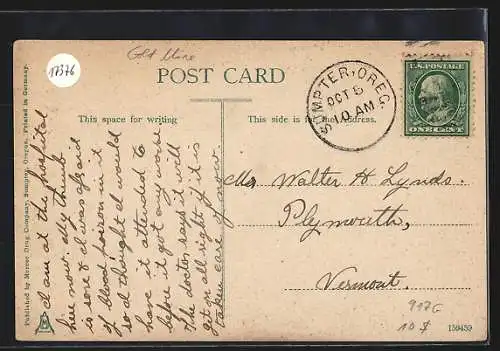 17376
Gold Mine
POST CARD
SUMPTER, OREG.
OCT 5
10 AM
U.S. POSTAGE
ONE CENT
This space for writing
This side is for the Address.
I am at the hospital
here now. My thumb
is sore & I was afraid
of blood poison in it
so I thought I would
have it attended to
before it got any worse
The doctor says it will
get on all right if it is
taken care of now.
Mr. Walter H Lynds.
Plymouth,
Vermont.
917G
10 $
159459
Published by Morrow Drug Company, Sumpter, Oregon. Printed in Germany.